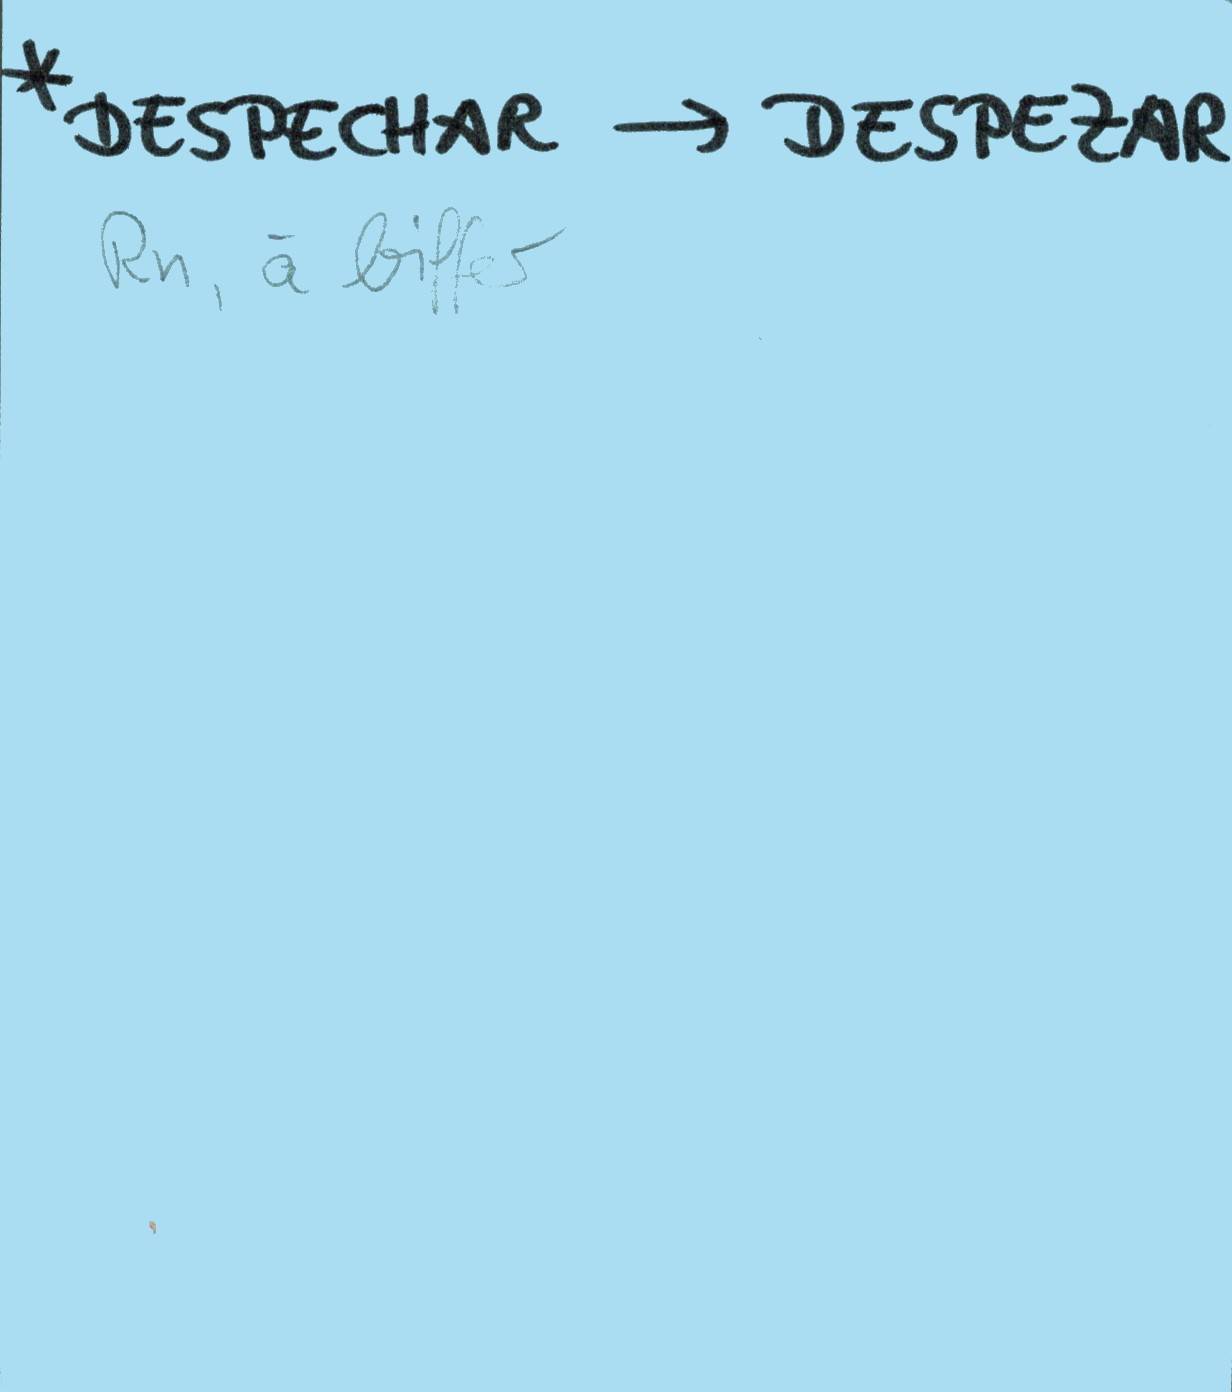 *DESPECHAR → DESPEZAR
Rn, à biffer